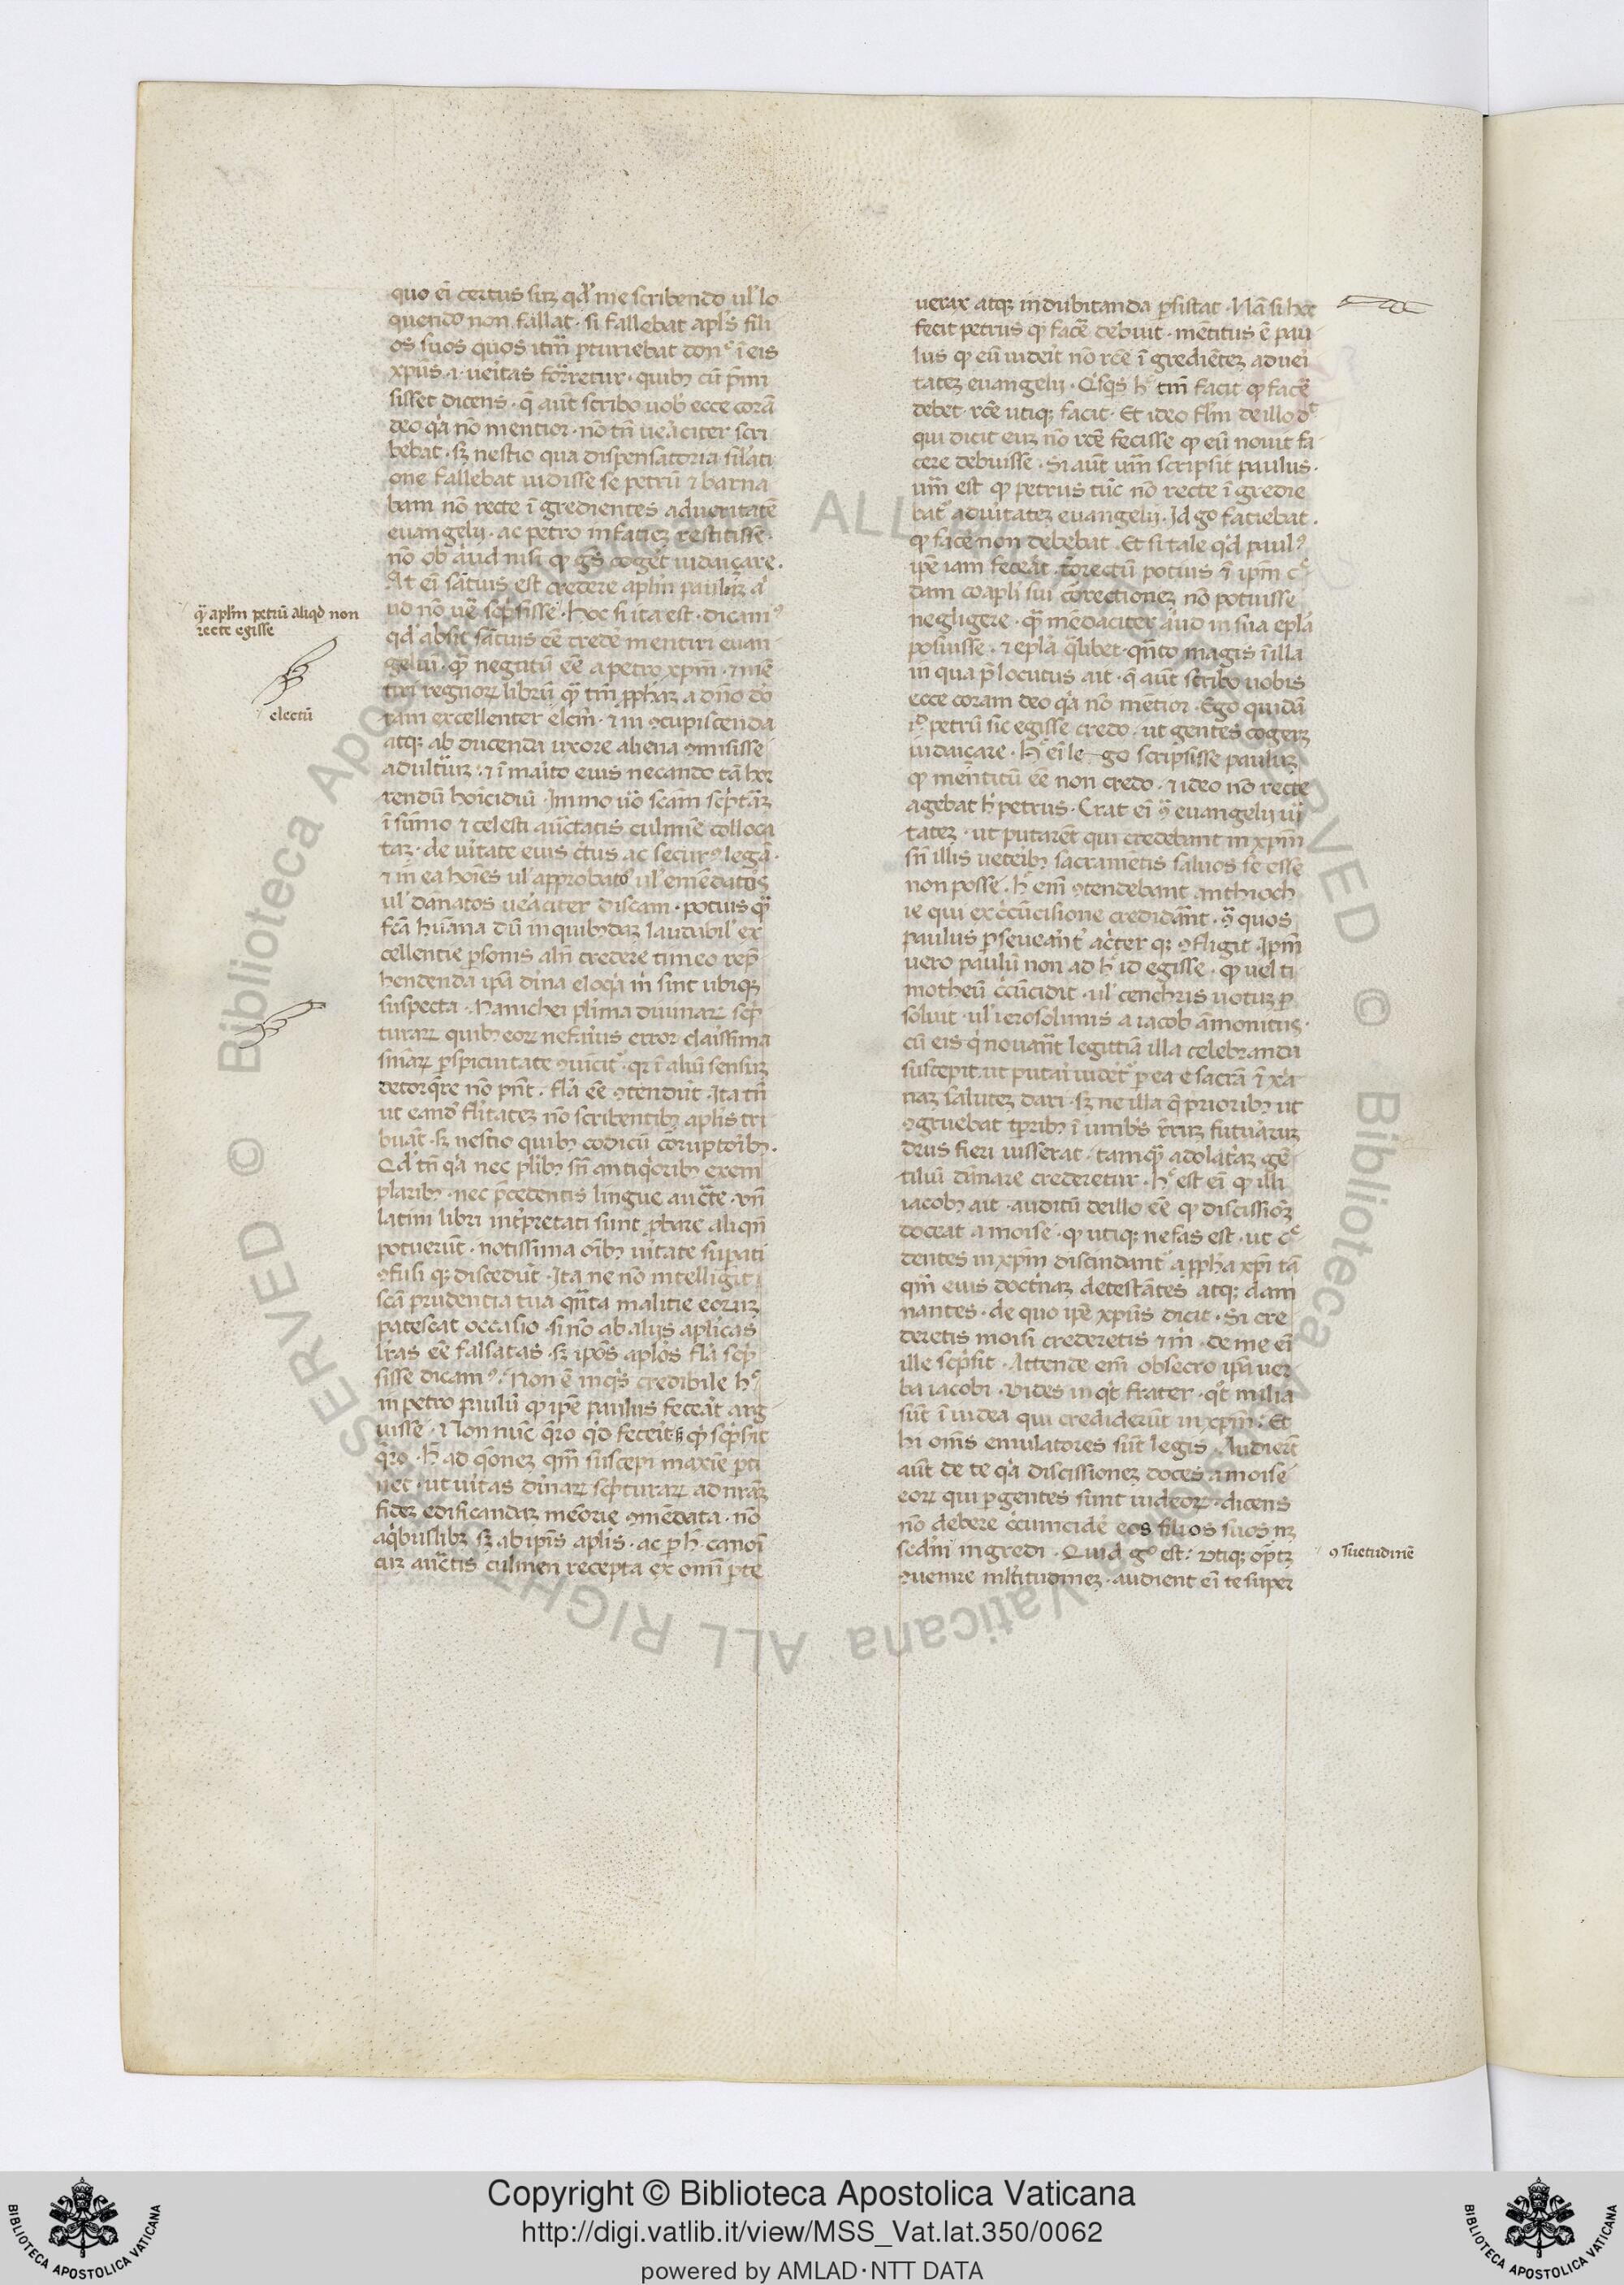 quo ei᷃ certus sitꝫ qd᷃ me scribendo ul᷃ lo
quendo non fallat · si fallebat apl᷃s fili
os suos quos itm᷃ ꝑturiebat donꝰ i᷃ eis
xpus · i · ueitas for᷃retur · quibꝫ cu᷃ p᷃mi
sisset dicens · q᷃ aut᷃ scribo uob᷃ ecce cora᷃
deo qa᷃ no᷃ mentior · no᷃ tn᷃ ueaciter scri
bebat · sꝫ nescio qua dispensatoria sil᷃ati
one fallebat uidisse se petru᷃ ⁊ barna
bam no᷃ recte i᷃gredientes aduoritate᷃
euangelij · ac petro in facieꝫ restitisse ·
no᷃ ob aliud nisi qꝫ ge᷃s coget᷃ iudaiçare ·
At ei᷃ sa᷃ctius est credere apl᷃m pauluꝫ a᷃li
ud no᷃ ue᷃ sc᷃psisse · Hoc si ita est · dicamꝰ
qd᷃ absit sa᷃ctius ee᷃ crede mentiri euan
gelui · qm᷃ negatu᷃ ee᷃ a petro xpm᷃ · ⁊ me᷃
tiri regnoꝝ libru᷃ qm᷃ tm᷃ ꝓphaꝫ a dn᷃o do
tam excellenter elc᷃m · ⁊ in ꝯcupiscenda
atqꝫ abducenda uxore aliena ꝯmisisse
adult᷃iuꝫ · ⁊ i᷃ maito eius necando ta᷃ hor
rendu᷃ hoi᷃cidiu᷃ · Immo uo᷃ sca᷃m sc᷃ptaꝫ
i᷃ sum᷃o ⁊ celesti auc᷃tatis culmie᷃ colloca
taꝫ · de ui᷃tate eius c᷃tus ac securꝰ lega᷃ ·
⁊ in ea hoie᷃s ul᷃ approbatos ul᷃ eme᷃datos
ul᷃ da᷃natos ueaciter discam · potius qm᷃
fc᷃a huma᷃na du᷃ in quibꝰdaꝫ laudabil᷃ ex
cellentie ꝑsonis ali᷃n credere timeo rep᷃
hendenda ip᷃a di᷃na eloqa᷃ m᷃ sint ubiqꝫ
suspecta · Manichei pl᷃ima diuinaꝝ sc᷃p
turaꝝ quibꝫ eoꝝ nefarius error claissima
sn᷃iaꝝ ꝑspicuitate ꝯuincit᷃ · qr᷃ i᷃ aliu᷃ sensuꝫ
detorq᷃re no᷃ pn᷃t · fl᷃a ee᷃ ꝯtendut᷃ · Ita tn᷃
ut eande᷃ fl᷃itateꝫ no᷃ scribentibꝫ apl᷃is tri
buat᷃ · sꝫ nescio quibꝫ codicu᷃ corruptoibꝫ ·
Qd᷃ tn᷃ qa᷃ nec pl᷃ibꝫ sn᷃ antiqoribꝫ exem
plaribꝫ · nec p᷃cedentis lingue auct᷃e · vn᷃
latini libri int᷃pretati sunt ꝓbare aliqn᷃
potuerut᷃ · notissima oi᷃bꝫ uitate supati
ꝯfusi qꝫ discedut᷃ · Ita ne no᷃ intelligit᷃
sca᷃ prudentia tua qn᷃ta malitie eoruꝫ
patescat occasio · si no᷃ ab alijs aplicas
lr᷃as ee᷃ falsatas · sꝫ ipo᷃s aplo᷃s fl᷃a sc᷃p
sisse dicamꝰ · Non e᷃ inqs᷃ credibile hꝰ
in petro paulu᷃ qꝫ ipe᷃ paulus feceat᷃ arg
uisse · Non nuc᷃ q᷃ro qd᷃ fecerit sꝫ qd᷃ sc᷃psit
q᷃ro · H᷃ ad q᷃oneꝫ qm᷃ suscepi maxie᷃ ꝑti
net · ut uitas diu᷃naꝝ sc᷃pturaꝝ ad nr᷃aꝫ
fideꝫ edificandaꝫ me᷃orie ꝯme᷃data · no᷃
a qb᷃uslibꝫ sꝫ ab ipi᷃s apl᷃is · ac ꝑ h᷃ canoi᷃
cuꝫ auct᷃is culmen recepta ex omi᷃ ꝑte
q᷃ apl᷃m petru᷃ aliqd᷃ non
recte egisse
electu᷃
uerax atqꝫ indubitanda ꝑsistat · Na᷃ si hoc
fecit petrus qꝫ face᷃ debuit · me᷃titus e᷃ pau
lus qꝫ eu᷃ uideit᷃ no᷃ rc᷃e i᷃gredie᷃teꝫ ad uei
tateꝫ euangelij · Qsqs᷃ h᷃ tm᷃ facit qꝫ face᷃
debet · rc᷃e utiqꝫ facit · Et ideo fl᷃m de illo dꝰ
qui dicit euꝫ no᷃ rc᷃e fecisse qꝫ eu᷃ nouit fa
cere debuisse · Si aut᷃ um᷃ scripsit paulus ·
um᷃ est qꝫ petrus tuc᷃ no᷃ recte i᷃gredie
bat᷃ ad uitateꝫ euangelij · Id gͦ faciebat ·
qꝫ face᷃ non debebat · Et si tale qd᷃ paulꝰ
ipe᷃ iam feceat᷃ · corectu᷃ potius ⁊ ipm᷃ cꝰ
dam coapli᷃ sui corectioneꝫ no᷃ potuisse
negligere · qm᷃ me᷃daciter aliud in sua epl᷃a
posuisse · ⁊ epl᷃a q᷃libet · qn᷃to magis i᷃ illa
in qua p᷃locutus ait · q᷃ aut᷃ scribo uobis
ecce coram deo qa᷃ no᷃ me᷃tior · Ego quida᷃
iꝰ petru᷃ sic egisse credo · ut gentes cogeꝫ
iudaiçare · H᷃ ei᷃ le go scripsisse pauluꝫ
qꝫ me᷃titu᷃ ee᷃ non credo · ⁊ ideo no᷃ recte
agebat h᷃ petrus · Erat ei᷃ ꝯ᷃ euangelij ui᷃
tateꝫ · ut putare᷃t qui credebant in xpm᷃
sn᷃ illis ueteibꝫ sacrame᷃tis saluos se esse
non posse · h᷃ em᷃ ꝯtendebant anthioch
ie qui ex c᷃cu᷃cisione credidat᷃ · ꝯ᷃ quos
paulus ꝑseueant᷃ ac᷃ter qꝫ ꝯfligit · Ipm᷃
uero paulu᷃ non ad h᷃ id egisse · qꝫ uel ti
motheu᷃ c᷃cu᷃cidit · ul᷃ cenchris uotuꝫ ꝑ
soluit · ul᷃ ierosolimis a iacob a᷃monitus ·
cu᷃ eis q᷃ nouant᷃ legittia᷃ illa celebranda
suscepit · ut putai uidet᷃ ꝑ ea e᷃ sacra᷃ ⁊ xa᷃
naꝫ saluteꝫ dari · sꝫ ne illa q᷃ prioribꝫ ut
ꝯgruebat tp᷃ribꝫ i᷃ umbs᷃ r᷃ruꝫ futuraruꝫ
deus fieri iusserat · tamqm᷃ adolat᷃aꝫ ge᷃
tiliu᷃ da᷃nare crederetur · H᷃ est ei᷃ qꝫ illi
iacobꝫ ait · auditu᷃ de illo ee᷃ qꝫ discissioꝫ
doceat a moise · qꝫ utiqꝫ nefas est · ut cꝰ
dentes in xpm᷃ discindant᷃ a ꝓpha xpi᷃ ta᷃
qm᷃ eius doct᷃naꝫ detesta᷃tes atqꝫ dam
nantes · de quo ipe᷃ xpus᷃ dicit · Si cre
deretis moisi crederetis ⁊ m᷃ · de me ei᷃
ille sc᷃psit · Attende em᷃ obsecro ip᷃a uer
ba iacobi · Vides inqt᷃ frater · qt᷃ milia
sut᷃ i᷃ iudea qui crediderut᷃ in xpm᷃ · Et
hi oms᷃ emulatores sut᷃ legis · Audiert᷃
aut᷃ de te qa᷃ discissioneꝫ doces a moise
eoꝝ qui ꝑ gentes sunt iudeoꝝ · dicens
no᷃ debere c᷃cumcide᷃ eos filios suos nꝫ
sedm᷃ ingredi · Quid gͦ est · Vtiqꝫ op᷃tꝫ
ꝯuenire ml᷃titudineꝫ · audient ei᷃ te super
ꝯsuetudine᷃
Copyright © Biblioteca Apostolica Vaticana
http://digi.vatlib.it/view/MSS_Vat.lat.350/0062
powered by AMLAD·NTT DATA